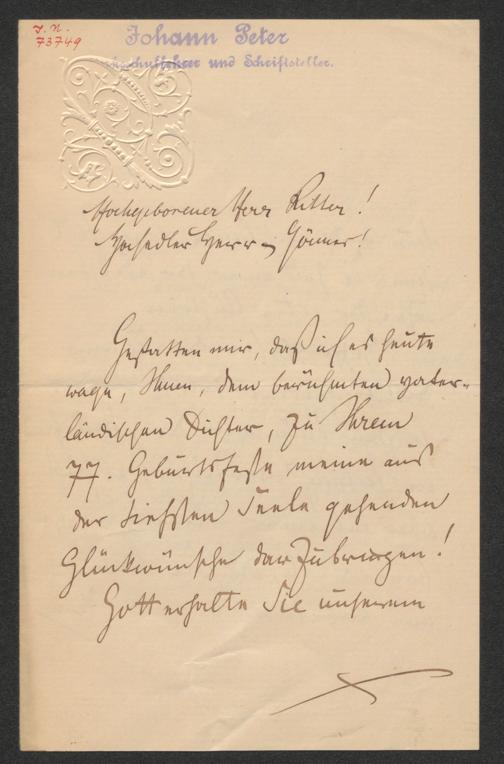 J. N.
73749
Johann Peter
und Schriftsteller.
Hochgeborener Herr Ritter!
Hochedler Herr Gönner!
Gestatten mir, daß ich es heute
wage, Ihnen, dem berühmten vater-
ländischen Dichter, zu Ihrem
77. Geburtsfeste meine aus
der tiefsten Seele gehenden
Glückwünsche darzubringen!
Gott erhalte Sie unserem